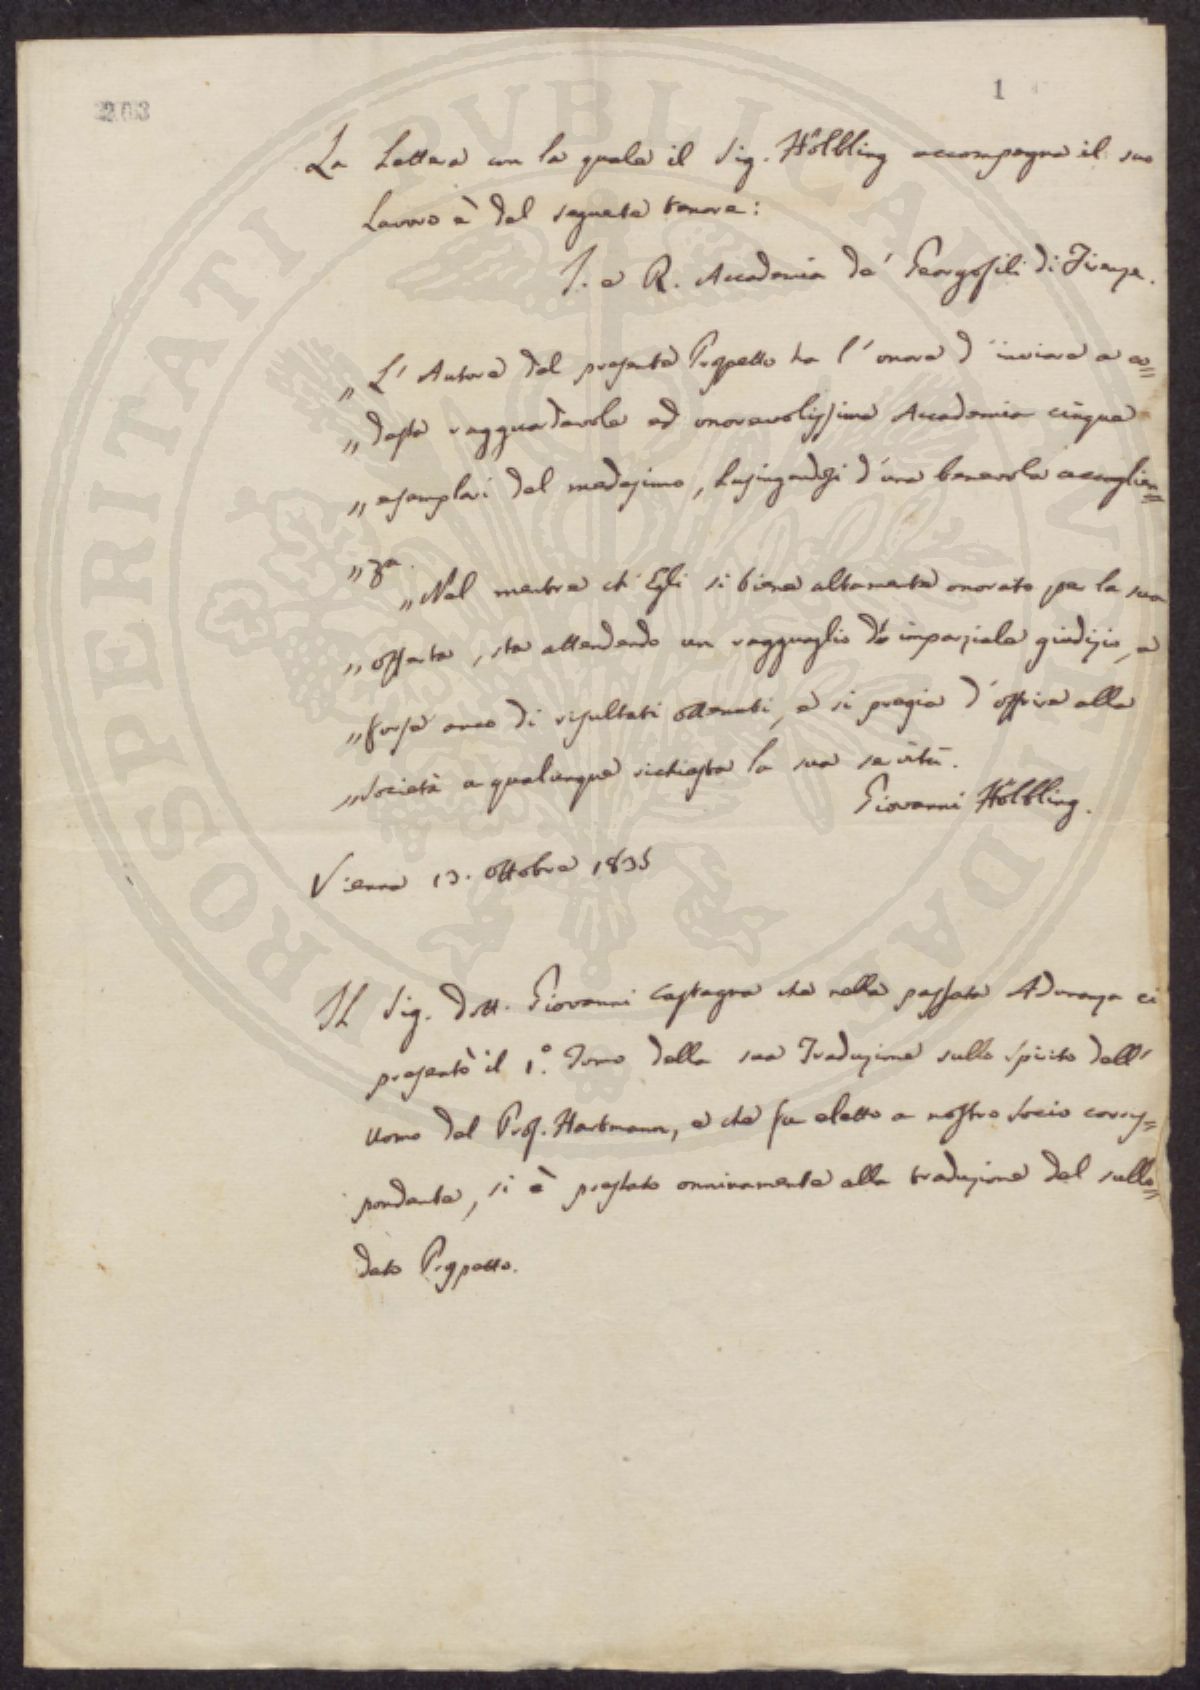 203
1
La Lettera con la quale il Sig. Hölbling accompagna il suo
Lavoro è del seguente tenore:
I. e R. Accademia de' Georgofili di Firenze.
„ L' Autore del presente Prospetto ha l' onore d' inviare a co=
„ desta ragguardevole ed onorevolissima Accademia cinque
„ esemplari del medesimo, lusingandosi d' una benevola accoglien=
„ za.
„ Nel mentre ch' Egli si tiene altamente onorato per la sua
„ offerta, sta attendendo un ragguaglio d' imparziale giudizio, e
„ forse anco di risultati ottenuti, e si pregia d' offrire alla
„ Società a qualunque richiesta la sua servitù.
Giovanni Hölbling.
Vienna 13. Ottobre 1835
Il Sig. Dott. Giovanni Castagna che nella passata Adunanza ci
presentò il 1.° Tomo della sua Traduzione sullo Spirito dell'
Uomo del Prof. Hartmann, e che fu eletto a nostro Socio corris=
pondente, si è prestato onninamente alla traduzione del sullo=
dato Prospetto.
PROSPERITATI PVBLICAE AVGENDAE